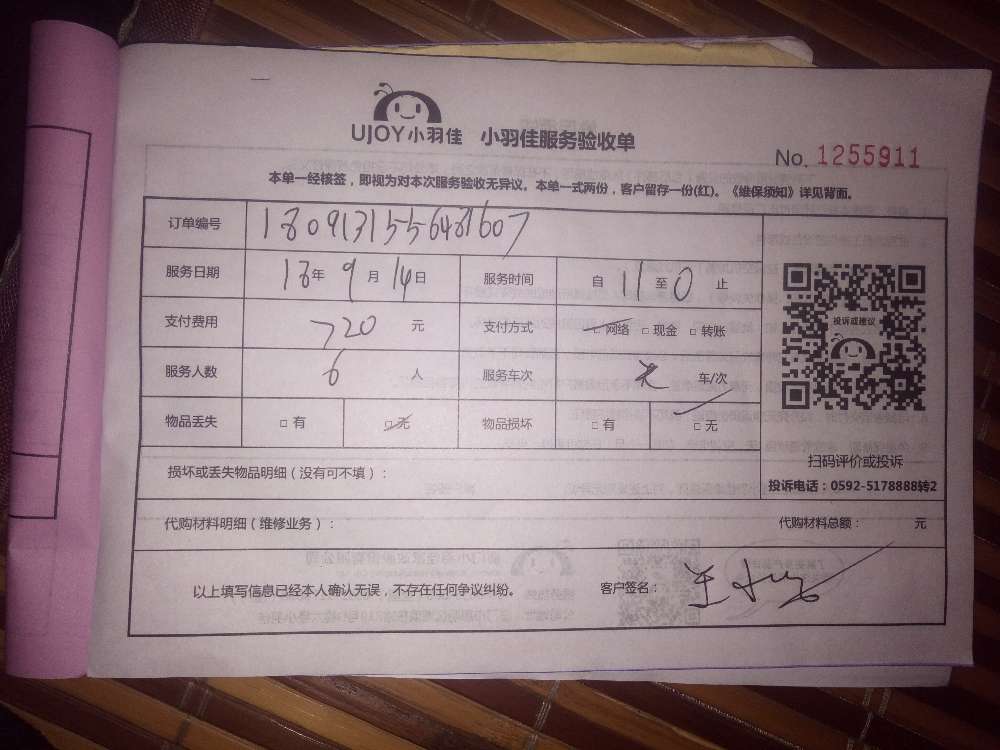 UJOY小羽佳 小羽佳服务验收单
No. 1255911
本单一经核签，即视为对本次服务验收无异议。本单一式两份，客户留存一份(红)。《维保须知》详见背面。
订单编号
服务日期 18年 9月 14日 服务时间 自 11 至 0 止
支付费用 720 元 支付方式 □ 网络 □ 现金 □ 转账
服务人数 6 人 服务车次 无 车/次
物品丢失 □ 有 □ 无 物品损坏 □ 有 □ 无
投诉或建议
扫码评价或投诉
投诉电话：0592-5178888转2
损坏或丢失物品明细（没有可不填）：
代购材料明细（维修业务）： 代购材料总额： 元
以上填写信息已经本人确认无误，不存在任何争议纠纷。 客户签名：